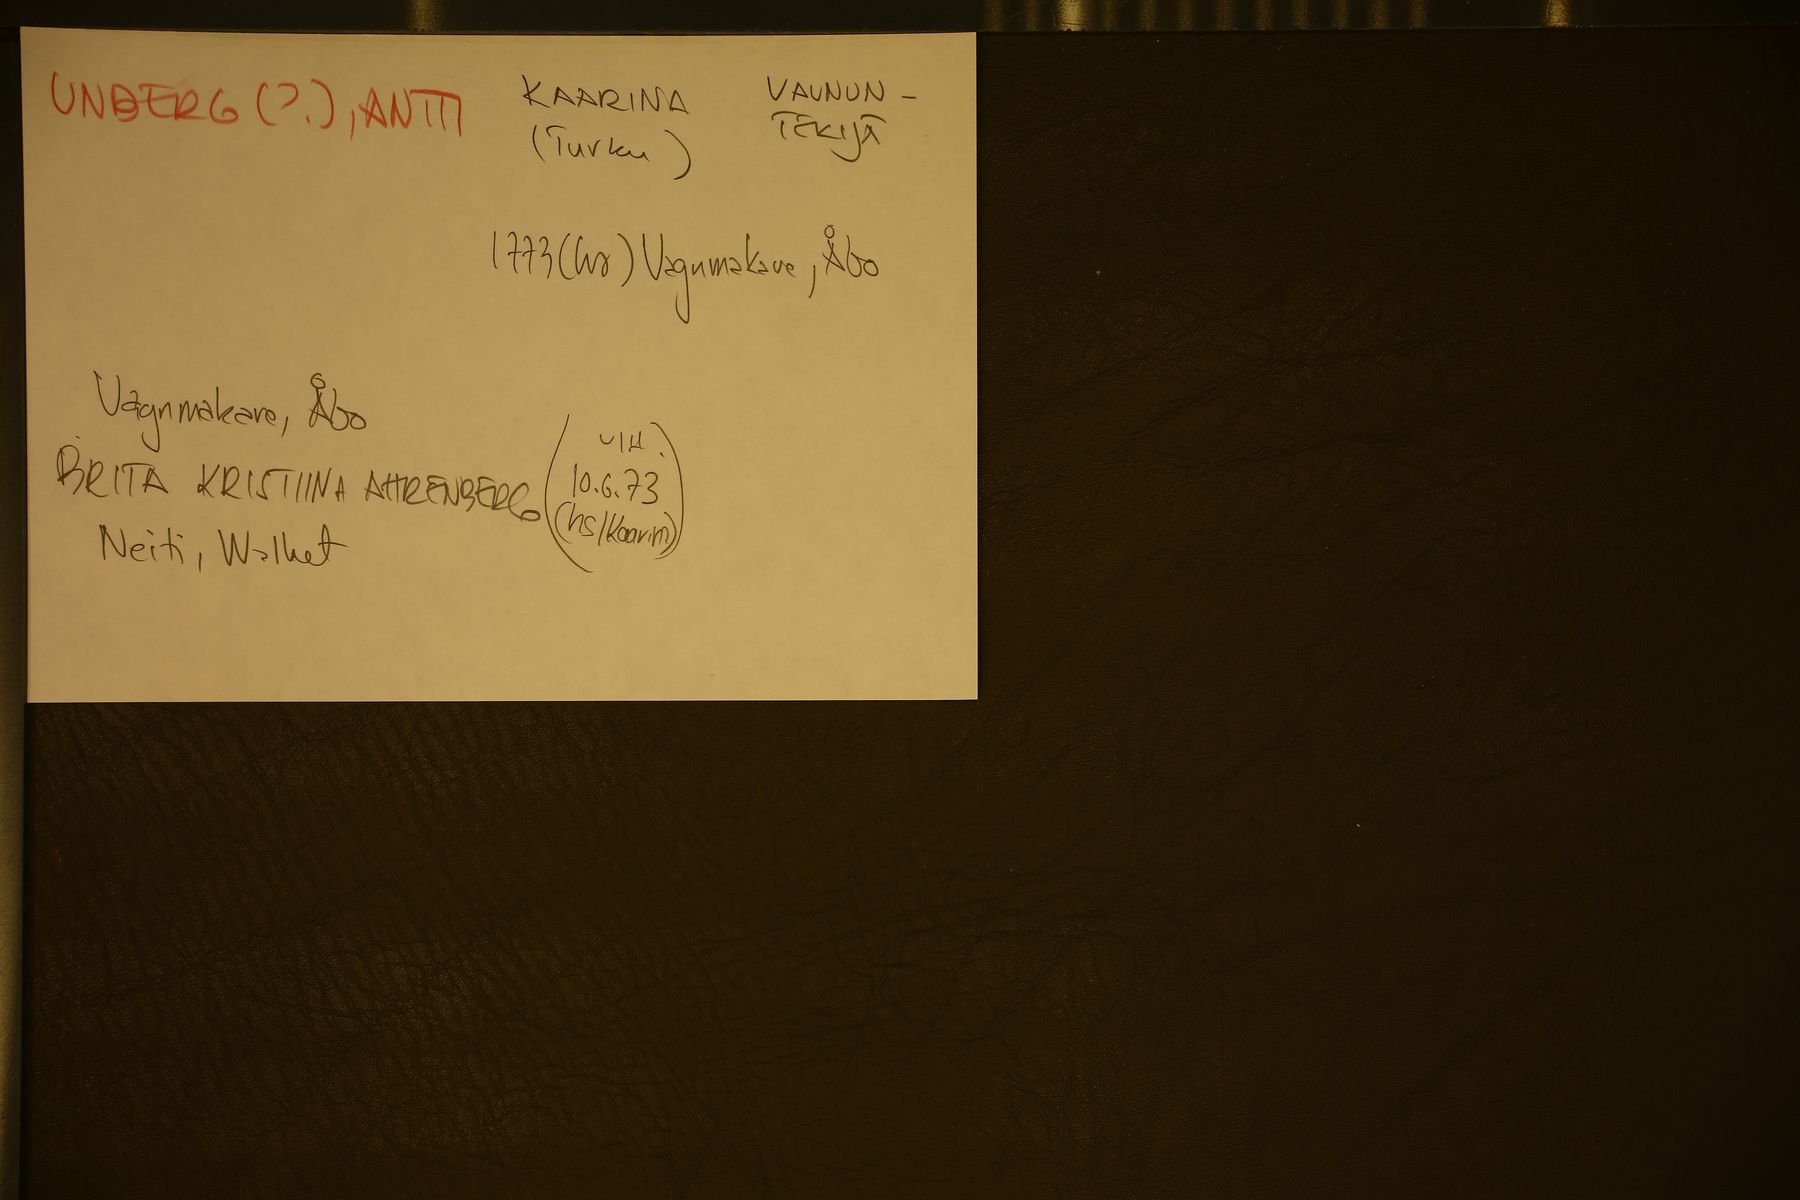 UNBERG (?.), ANTTI KAARINA VAUNUN-
(Turku) TEKIJÄ
1773 (hs) Vagnmakare, Åbo
Vagnmakare, Åbo
BRITA KRISTIINA AHRENBERG (VIH.
10.6.73
(hs/Kaarin))
Neiti, Walket